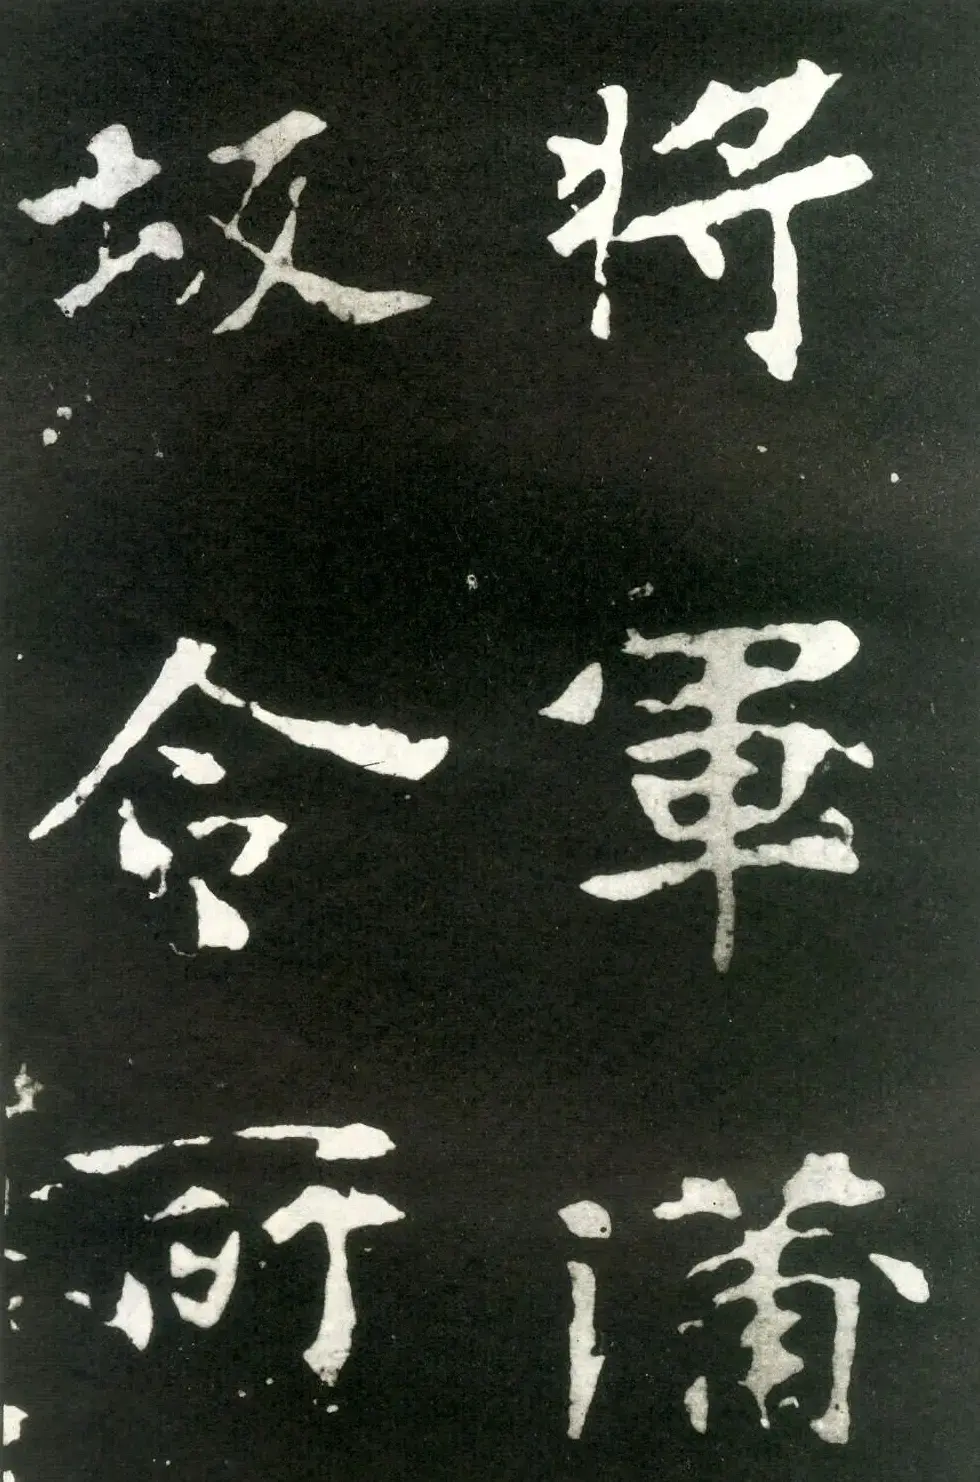 将軍蒲
故令所